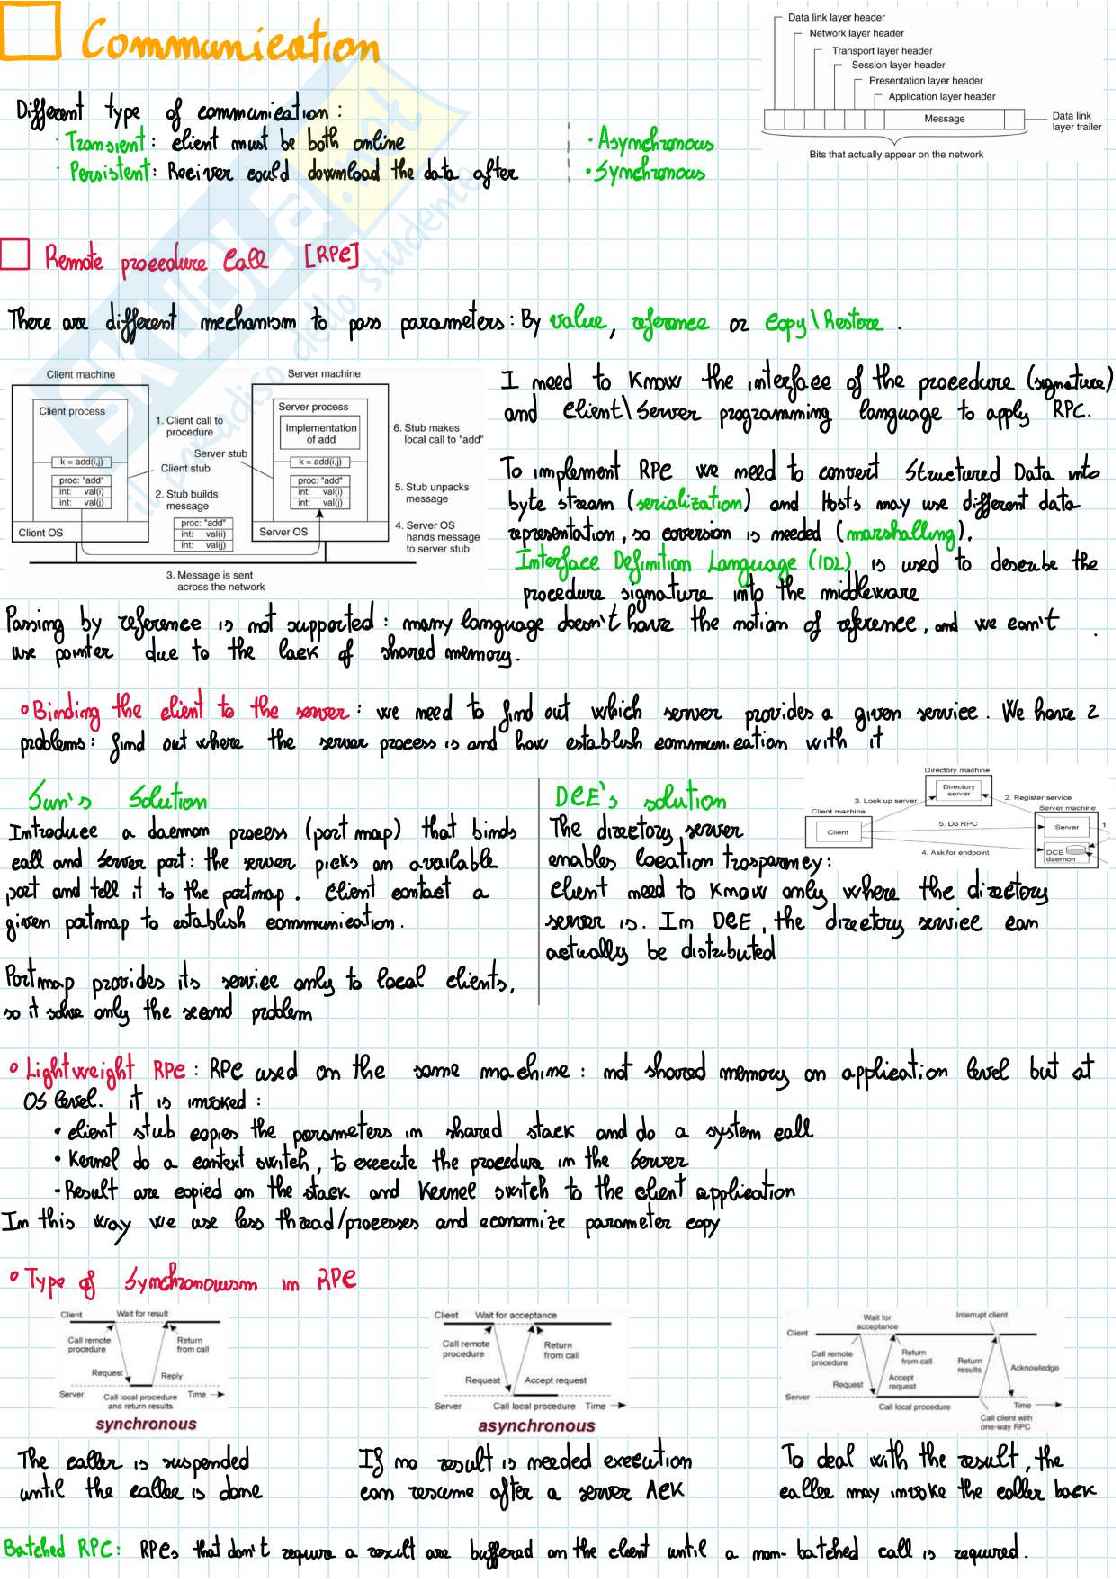 Communication
Data link layer header
Network layer header
Transport layer header
Session layer header
Presentation layer header
Application layer header
Message
Data link
layer trailer
Bits that actually appear on the network
Different type of communication:
· Transient: client must be both online
· Persistent: Reciver could download the data after
· Asynchronous
· Synchronous
Remote procedure Call [RPC]
There are different mechanism to pass parameters: By value, reference or Copy\Restore.
Client machine
Server machine
Client process
Server process
Implementation
of add
1. Client call to
procedure
6. Stub makes
local call to "add"
Server stub
k = add(i,j)
k = add(i,j)
Client stub
proc: "add"
int: val(i)
int: val(j)
proc: "add"
int: val(i)
int: val(j)
2. Stub builds
message
5. Stub unpacks
message
proc: "add"
int: val(i)
int: val(j)
4. Server OS
hands message
to server stub
Client OS
Server OS
3. Message is sent
across the network
I need to know the interface of the procedure (signature)
and client\server programming language to apply RPC.
To implement RPC we need to convert Structured Data into
byte stream (serialization) and Hosts may use different data
representation, so coversion is needed (marshalling).
Interface Definition Language (IDL) is used to describe the
procedure signature into the middleware
Passing by reference is not supported: many language doesn't have the notion of reference, and we can't
use pointer due to the lack of shared memory.
° Binding the client to the server: we need to find out which server provides a given service. We have 2
problems: find out where the server process is and how establish communication with it
Sun's Solution
Introduce a daemon process (port map) that binds
call and server port: the server picks an available
port and tell it to the portmap. Client contact a
given portmap to establish communication.
Portmap provides its service only to local clients,
so it solve only the second problem
DCE's solution
The directory server
enables location trasparency:
Client need to know only where the directory
server is. In DCE, the directory service can
actually be distributed
Directory machine
Directory
server
3. Look up server
2. Register service
Client machine
Server machine
Client
5. Do RPC
Server
1
4. Ask for endpoint
DCE
daemon
° Lightweight RPC: RPC used on the same machine: not shared memory on application level but at
OS level. it is invoked:
· client stub copies the parameters in shared stack and do a system call
· Kernel do a context switch, to execute the procedure in the server
- Result are copied on the stack and Kernel switch to the client application
In this way we use less thread/processes and economize parameter copy
° Type of Synchronousm in RPC
Client
Wait for result
Call remote
procedure
Return
from call
Request
Reply
Server
Call local procedure
and return results
Time
synchronous
Client
Wait for acceptance
Call remote
procedure
Return
from call
Request
Accept request
Server
Call local procedure
Time
asynchronous
Wait for
acceptance
Interrupt client
Client
Call remote
procedure
Return
from call
Return
results
Acknowledge
Accept
request
Request
Server
Call local procedure
Time
Call client with
one-way RPC
The caller is suspended
until the caller is done
If no result is needed execution
can resume after a server ACK
To deal with the result, the
caller may invoke the caller back
Batched RPC: RPCs that don't require a result are buffered on the client until a non-batched call is required.